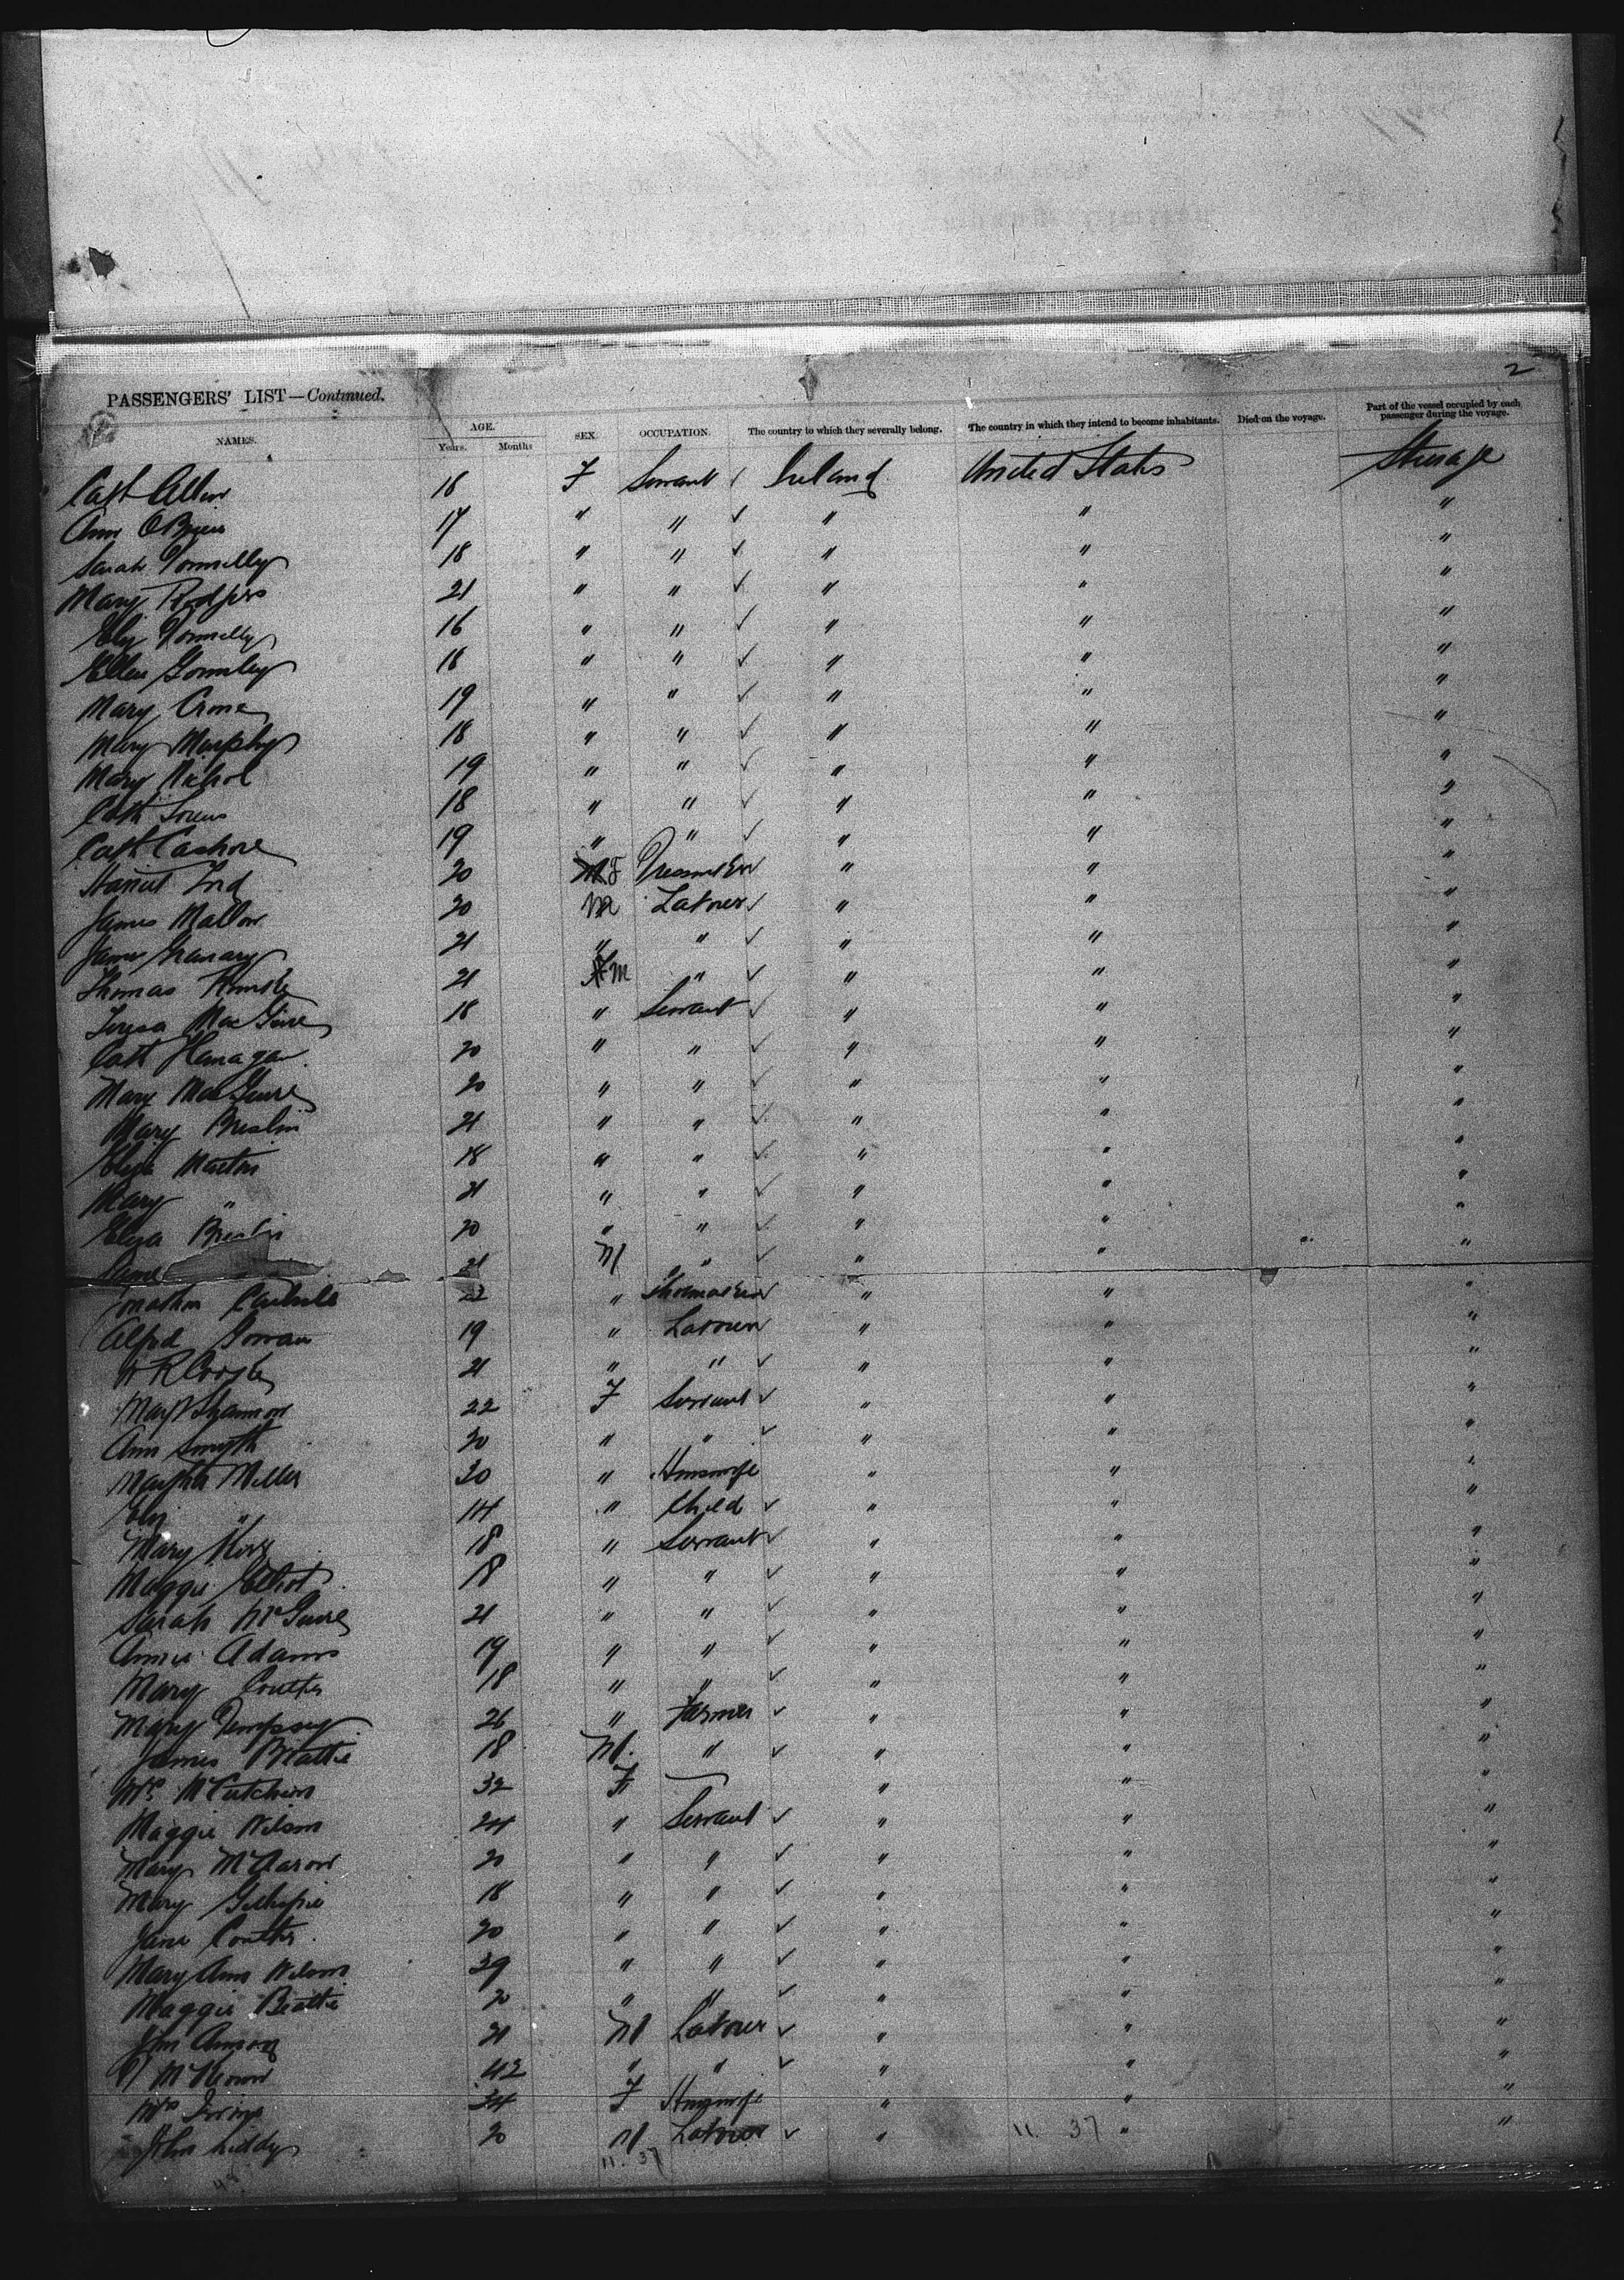 2
PASSENGERS' LIST—Continued.
NAMES. AGE. Years. Months SEX. OCCUPATION. The country to which they severally belong. The country in which they intend to become inhabitants. Died on the voyage. Part of the vessel occupied by each passenger during the voyage.
Cath Allen 16 F Servant Ireland United States Sterage
Ann OBrien 17 " " " " "
Sarah Donnelly 18 " " " " "
Mary Rodgers 21 " " " " "
Eliz Donnelly 16 " " " " "
Ellen Gormley 18 " " " " "
Mary Crone 19 " " " " "
Mary Murphy 18 " " " " "
Mary Nichol 19 " " " " "
Cath 18 " " " " "
Cath Cashore 19 " " " " "
Harriet Ford 20 F Dressmaker " " "
James Mallon 20 M Labourer " " "
James Granary 21 " " " " "
Thomas 21 M " " " "
Teresa MacGuire 18 " Servant " " "
Cath Flanagan 20 " " " " "
Mary MacGuire 20 " " " " "
Mary Breslin 21 " " " " "
Eliza Martin 18 " " " " "
Mary " 21 " " " " "
Eliza Breslin 20 " " " " "
21 M " " " "
Jonathan Carlisle 22 " Shoemaker " " "
Alfred Gorran 19 " Labourer " " "
21 " " " " "
Mary Shannon 22 F Servant " " "
Ann Smyth 20 " " " " "
Martha Miller 30 " Housewife " " "
Eliz " 14 " Child " " "
Mary 18 " Servant " " "
Maggie Elliot 18 " " " " "
Sarah McGuire 21 " " " " "
Annie Adams 19 " " " " "
Mary Coulter 18 " " " " "
Mary Dempsey 26 " Farmer " " "
James Beattie 18 M. " " " "
Mrs McCutcheon 32 F — " " "
Maggie Wilson 24 " Servant " " "
Mary McAaron 20 " " " " "
Mary Gillespie 18 " " " " "
Jane Coulter 20 " " " " "
Mary Ann Wilson 39 " " " " "
Maggie Beattie 20 " " " " "
Jn 21 M Labourer " " "
McKeown 42 " " " " "
Mrs Irvine 34 F Housewife " " "
John Liddy 20 M Labourer " " "
48 11. 37 11. 37